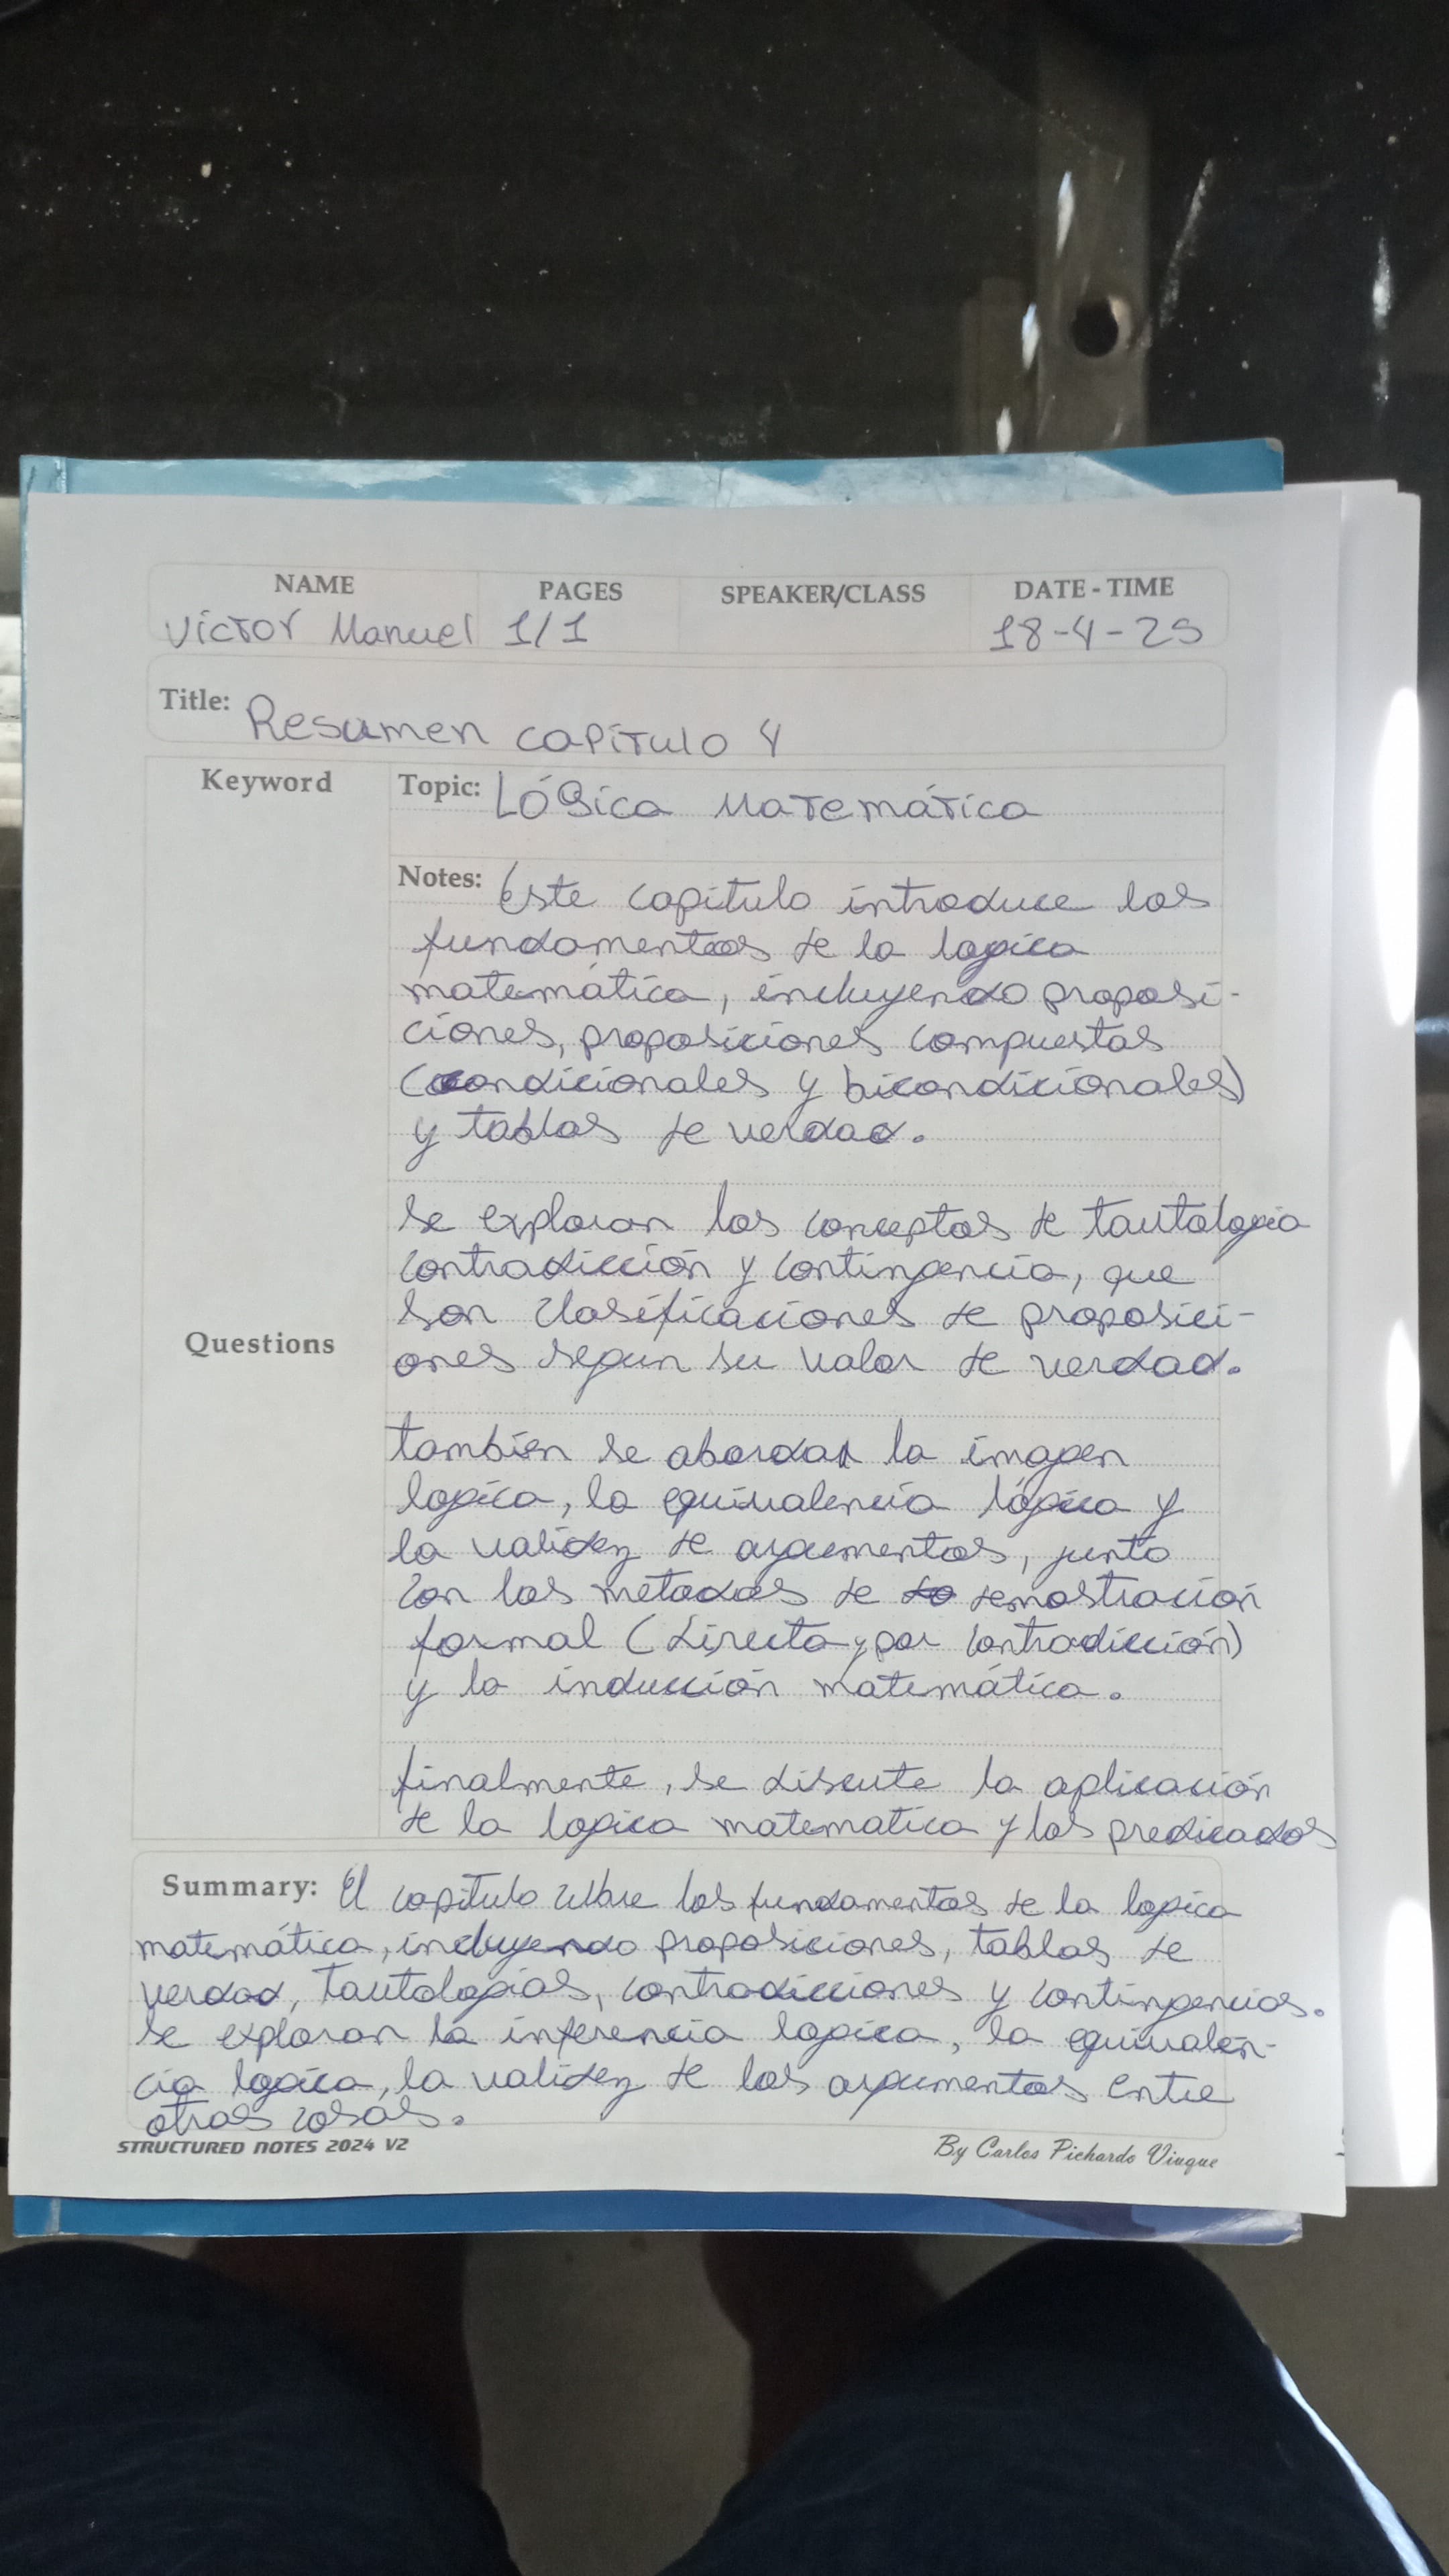 NAME PAGES SPEAKER/CLASS DATE - TIME
Víctor Manuel 1/1 18-4-25
Title: Resumen capítulo 4
Keyword
Topic: Lógica Matemática
Notes: Este capitulo introduce los
fundamentos de la logica
matemática, incluyendo proposi-
ciones, proposiciones compuestas
(condicionales y bicondicionales)
y tablas de verdad.
se exploran los conceptos de tautologia
contradicción y contingencia, que
son clasificaciones de proposici-
Questions
ones segun su valor de verdad.
tambien se abordan la imagen
logica, la equivalencia lógica y
la validez de argumentos, junto
con los metodos de demostración
formal (directa y por contradicción)
y la inducción matemática.
finalmente, se discute la aplicación
de la logica matematica y los predicados
Summary: El capitulo cubre los fundamentos de la logica
matemática, incluyendo proposiciones, tablas de
verdad, tautologias, contradicciones y contingencias.
se exploran la inferencia logica, la equivalen-
cia logica, la validez de los argumentos entre
otras cosas.
STRUCTURED NOTES 2024 V2
By Carlos Pichardo Viuque